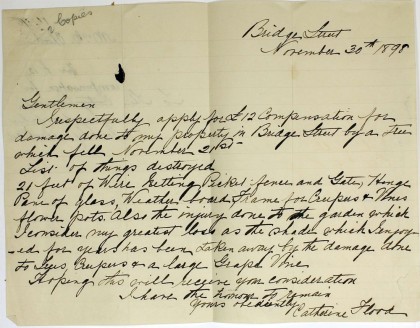 Copies
Bridge Street
November 30th 1898
Gentlemen
I respectfully apply for £12 Compensation for
damage done to my property in Bridge Street by a Tree
which fell November 21st
List of things destroyed
21 feet of Wire Netting Picket fence and Gate, Hinge
Pane of glass, Weather board Frame for Creepers & Vines
flower pots. Also the injury done to the garden which
I consider my greatest loss as the shade which I enjoy
-ed for years has been taken away by the damage done
to Trees, Creepers & a large Grape Vine
Hoping this will receive your consideration
I have the honour to remain
Yours obediently
Catherine Flood